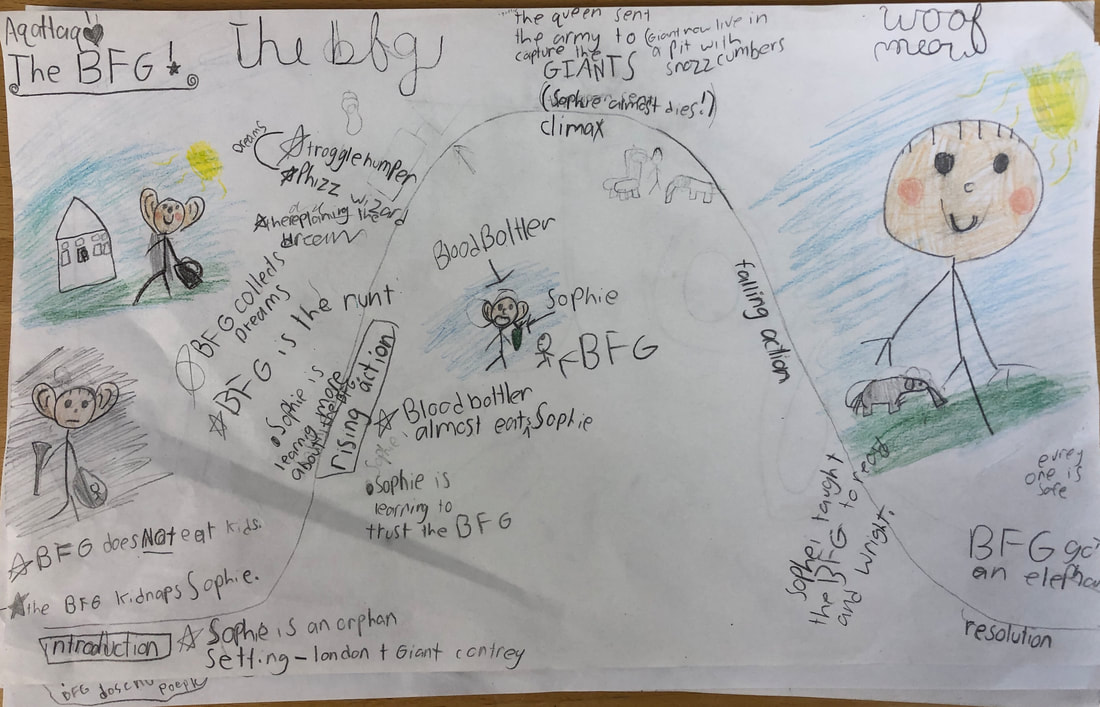 The BFG!
The bfg
the queen sent
the army to
capture the
GIANTS
Giant now live in
a pit with
snozzcumbers
(Sophie almost dies!)
climax
woof
meow
Dreams
trogglehumper
Phizz wizard
BFG collects
Dreams
BFG is the runt
Sophie is
learning more
about the BFG
rising action
BloodBottler
Sophie
BFG
Bloodbottler
almost eats Sophie
Sophie is
learning to
trust the BFG
falling action
Sophei taught
the BFG to read
and wright.
BFG does Not eat kids.
the BFG kidnaps Sophie.
introduction
Sophie is an orphan
Setting - london + Giant contrey
BFG
evrey
one is
safe
BFG got
an elephan
resolution